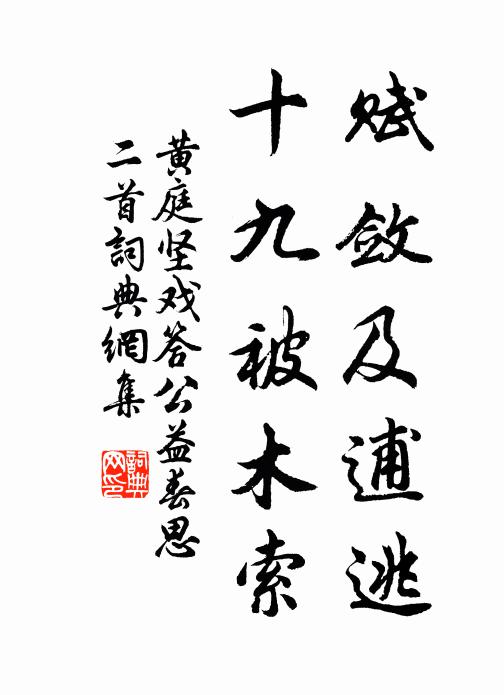 赋敛及逋逃
十九被木索
黄庭坚戏答公益春思
二首詞典網集
詞典
网印